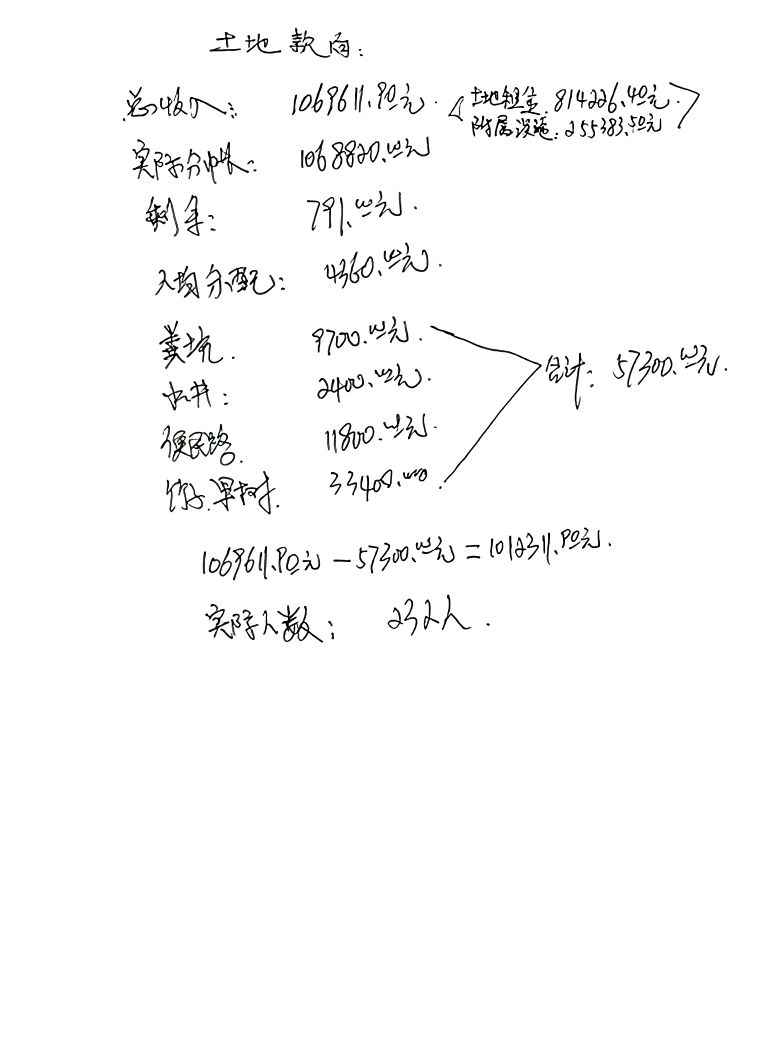 土地款向:
总收入: 1069611.90元. <土地租金:814226.40元.>
附属设施:255383.50元
实际分帐: 1068820.00元
剩余: 791.00元.
人均分配: 4360.00元.
粪坑. 9700.00元.
水井: 2400.00元.
便民路. 11800.00元. 合计: 57300.00元.
竹子.果树. 33400.00.
1069611.90元-57300.00元=1012311.90元.
实际人数: 232人.